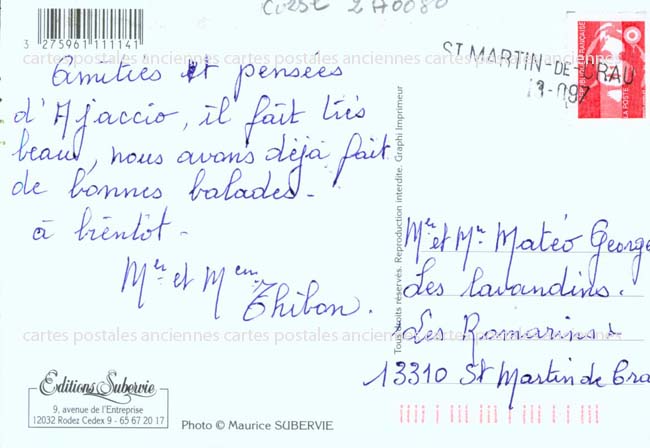 Corse 2A0080
3 275961 111141
cartes postales anciennes cartes postales anciennes cartes postales anciennes
Amitiés et pensées
d'Ajaccio, il fait très
beau, nous avons déjà fait
de bonnes balades -
à bientôt -
Mr et Mme
Thibon.
Editions Subervie
9, avenue de l'Entreprise
12032 Rodez Cedex 9 - 65 67 20 17
Photo © Maurice SUBERVIE
Tous droits réservés. Reproduction interdite. Graphi Imprimeur
ST MARTIN-DE-CRAU
LA POSTE
Mr et Mme Matéo George
Les lavandins.
Les Romarins
13310 St Martin de Cra
cartes postales anciennes cartes postales anciennes cartes postales anciennes